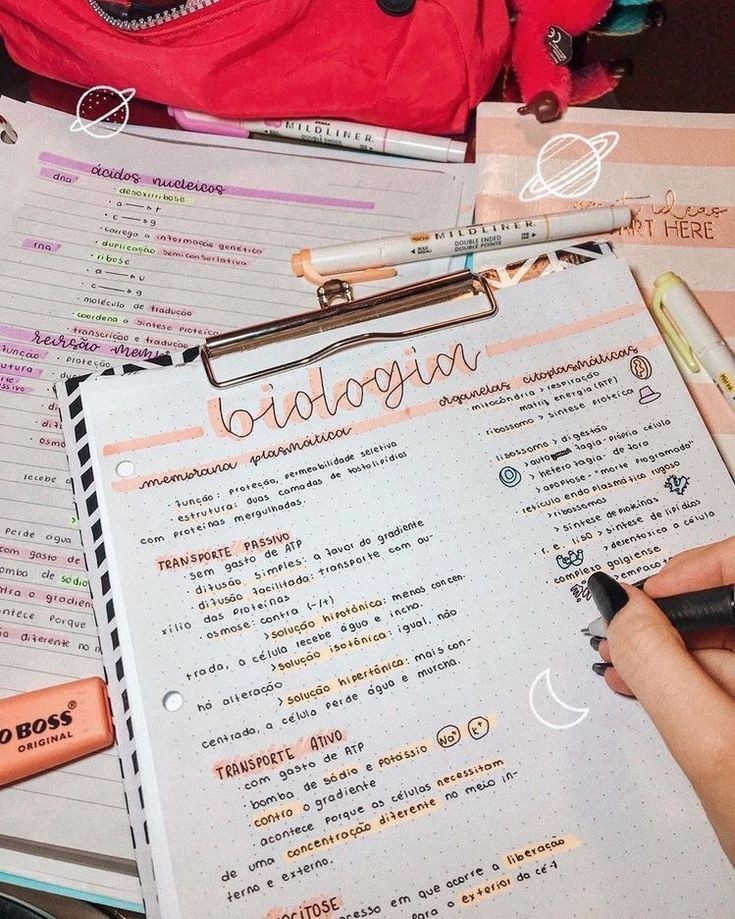 MILDLINER
ácidos nucleicos
dna
desoxirribose
a → t
c → g
carrega a informação genética
duplicação semiconservativa
rna
ribose
a → u
c → g
molécula de tradução
coordena a síntese proteica
transcrição e tradução
função: proteção,
recebe a
perde água
com gasto de
bomba de sódio
o gradiente
acontece porque
diferente no m
START HERE
MILDLINER
DOUBLE ENDED
DOUBLE POINTE
BOSS
ORIGINAL
biologia
membrana plasmática
função: proteção, permeabilidade seletiva
estrutura: duas camadas de fosfolipídios
com proteínas mergulhadas.
TRANSPORTE PASSIVO
sem gasto de ATP
difusão simples: a favor do gradiente
difusão facilitada: transporte com au-
xílio das proteínas
osmose: contra (-/+)
>solução hipotônica: menos concen
trada, a célula recebe água e incha.
>solução isotônica: igual, não
há alteração
>solução hipertônica: mais con-
centrada, a célula perde água e murcha.
TRANSPORTE ATIVO
com gasto de ATP
bomba de sódio e potássio Na+ K+
contra o gradiente
acontece porque as células necessitam
de uma concentração diferente no meio in-
terno e externo.
OCITOSE
cesso em que ocorre a liberação
para o exterior da cé-l
organelas citoplasmáticas
mitocôndria > respiração
matriz energia (ATP)
ribossomo > síntese proteica
lisossomo > digestão
> autofagia - própria célula
> heterofagia - de fora
> apoptose - "morte programada"
retículo endoplasmático rugoso
>ribossomos
> síntese de proteínas
r. e. liso > síntese de lipídios
> desentoxica a célula
complexo golgiense
>empacota